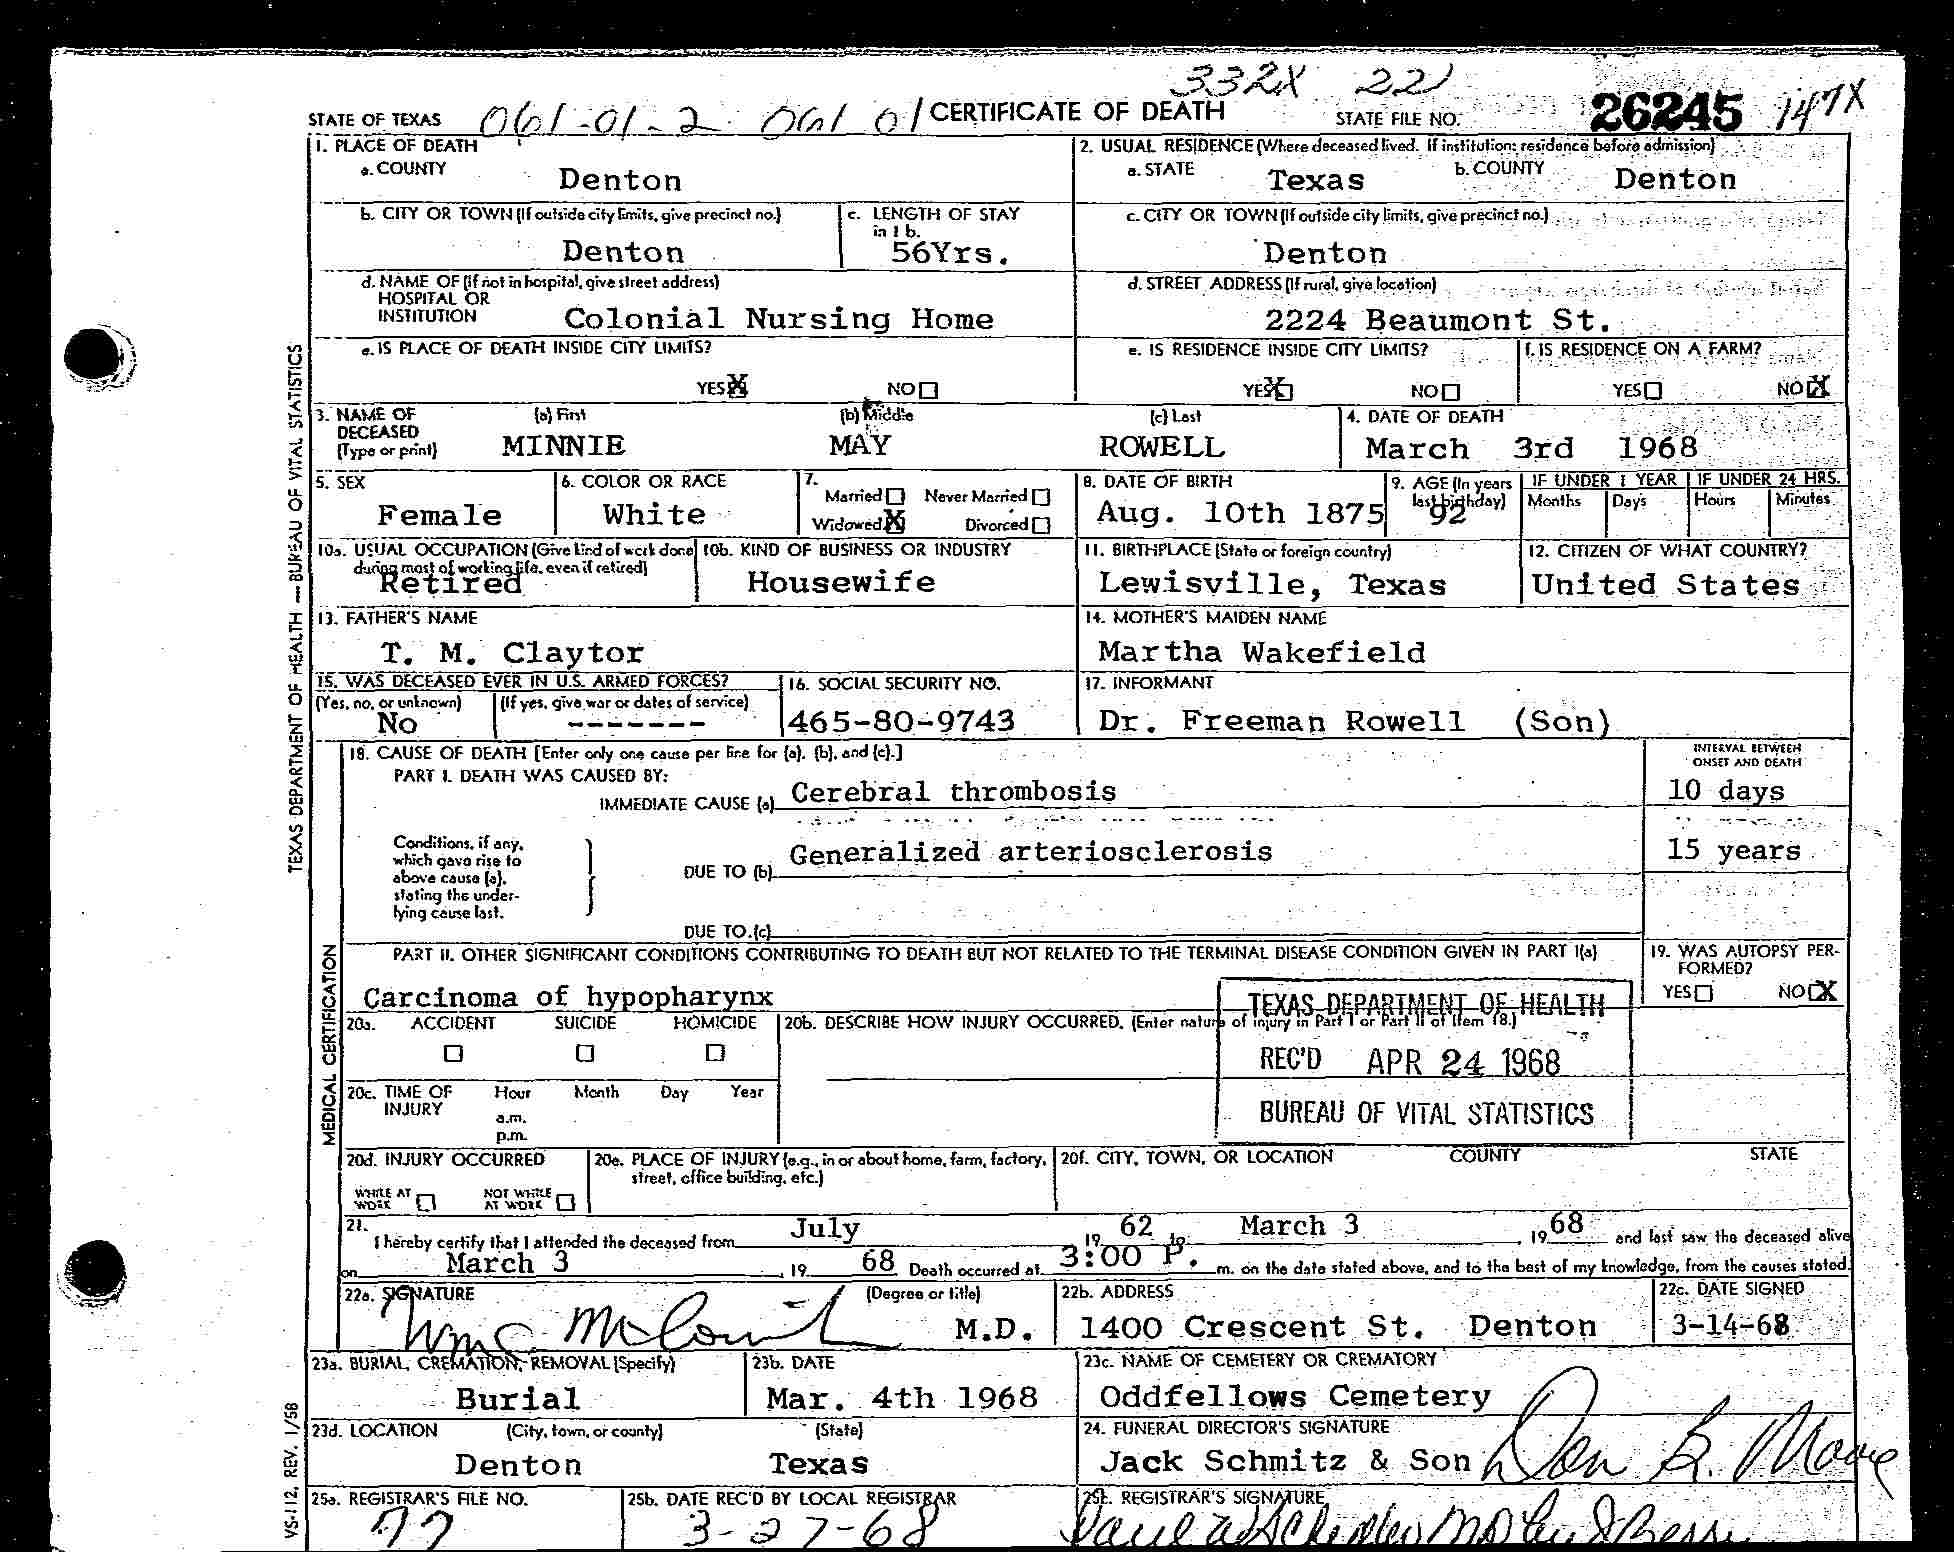 332X 221
STATE OF TEXAS 061-01-2 061 01 CERTIFICATE OF DEATH STATE FILE NO. 26245 147X
1. PLACE OF DEATH
a. COUNTY Denton
2. USUAL RESIDENCE (Where deceased lived. If institution: residence before admission)
a. STATE Texas b. COUNTY Denton
b. CITY OR TOWN (If outside city limits, give precinct no.) Denton
c. LENGTH OF STAY in 1 b. 56Yrs.
c. CITY OR TOWN (If outside city limits, give precinct no.) Denton
d. NAME OF (If not in hospital, give street address) HOSPITAL OR INSTITUTION Colonial Nursing Home
d. STREET ADDRESS (If rural, give location) 2224 Beaumont St.
e. IS PLACE OF DEATH INSIDE CITY LIMITS? YES X NO
e. IS RESIDENCE INSIDE CITY LIMITS? YES X NO
f. IS RESIDENCE ON A FARM? YES NO X
3. NAME OF DECEASED (Type or print) (a) First MINNIE (b) Middle MAY (c) Last ROWELL
4. DATE OF DEATH March 3rd 1968
5. SEX Female
6. COLOR OR RACE White
7. Married Never Married Widowed X Divorced
8. DATE OF BIRTH Aug. 10th 1875
9. AGE (In years last birthday) 92
IF UNDER 1 YEAR Months Days
IF UNDER 24 HRS. Hours Minutes
10a. USUAL OCCUPATION (Give kind of work done during most of working life, even if retired) Retired
10b. KIND OF BUSINESS OR INDUSTRY Housewife
11. BIRTHPLACE (State or foreign country) Lewisville, Texas
12. CITIZEN OF WHAT COUNTRY? United States
13. FATHER'S NAME T. M. Claytor
14. MOTHER'S MAIDEN NAME Martha Wakefield
15. WAS DECEASED EVER IN U.S. ARMED FORCES? (Yes, no, or unknown) No (If yes, give war or dates of service) -------
16. SOCIAL SECURITY NO. 465-80-9743
17. INFORMANT Dr. Freeman Rowell (Son)
18. CAUSE OF DEATH [Enter only one cause per line for (a), (b), and (c).]
INTERVAL BETWEEN ONSET AND DEATH
PART I. DEATH WAS CAUSED BY:
IMMEDIATE CAUSE (a) Cerebral thrombosis 10 days
Conditions, if any, which gave rise to above cause (a), stating the underlying cause last.
DUE TO (b) Generalized arteriosclerosis 15 years
DUE TO (c)
PART II. OTHER SIGNIFICANT CONDITIONS CONTRIBUTING TO DEATH BUT NOT RELATED TO THE TERMINAL DISEASE CONDITION GIVEN IN PART I(a)
Carcinoma of hypopharynx
19. WAS AUTOPSY PERFORMED? YES NO X
20a. ACCIDENT SUICIDE HOMICIDE
20b. DESCRIBE HOW INJURY OCCURRED. (Enter nature of injury in Part I or Part II of Item 18.)
TEXAS DEPARTMENT OF HEALTH
REC'D APR 24 1968
BUREAU OF VITAL STATISTICS
20c. TIME OF INJURY Hour a.m. p.m. Month Day Year
20d. INJURY OCCURRED WHILE AT WORK NOT WHILE AT WORK
20e. PLACE OF INJURY (e.g., in or about home, farm, factory, street, office building, etc.)
20f. CITY, TOWN, OR LOCATION COUNTY STATE
21. I hereby certify that I attended the deceased from July 19 62 to March 3, 19 68 and last saw the deceased alive
on March 3, 19 68 Death occurred at 3:00 P. m. on the date stated above, and to the best of my knowledge, from the causes stated.
22a. SIGNATURE (Degree or title) M.D.
22b. ADDRESS 1400 Crescent St. Denton
22c. DATE SIGNED 3-14-68
23a. BURIAL, CREMATION, REMOVAL (Specify) Burial
23b. DATE Mar. 4th 1968
23c. NAME OF CEMETERY OR CREMATORY Oddfellows Cemetery
23d. LOCATION (City, town, or county) (State) Denton Texas
24. FUNERAL DIRECTOR'S SIGNATURE Jack Schmitz & Son Don B. Moore
25a. REGISTRAR'S FILE NO. 77
25b. DATE REC'D BY LOCAL REGISTRAR 3-27-68
REGISTRAR'S SIGNATURE
TEXAS DEPARTMENT OF HEALTH — BUREAU OF VITAL STATISTICS
MEDICAL CERTIFICATION
VS-112, REV. 1/58